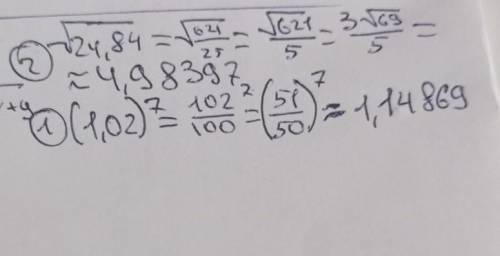 ② √24,84 = √621/25 = √621/5 = 3√69/5 =
≈ 4,98397
① (1,02)⁷ = 102⁷/100 = (51/50)⁷ ≈ 1,14869